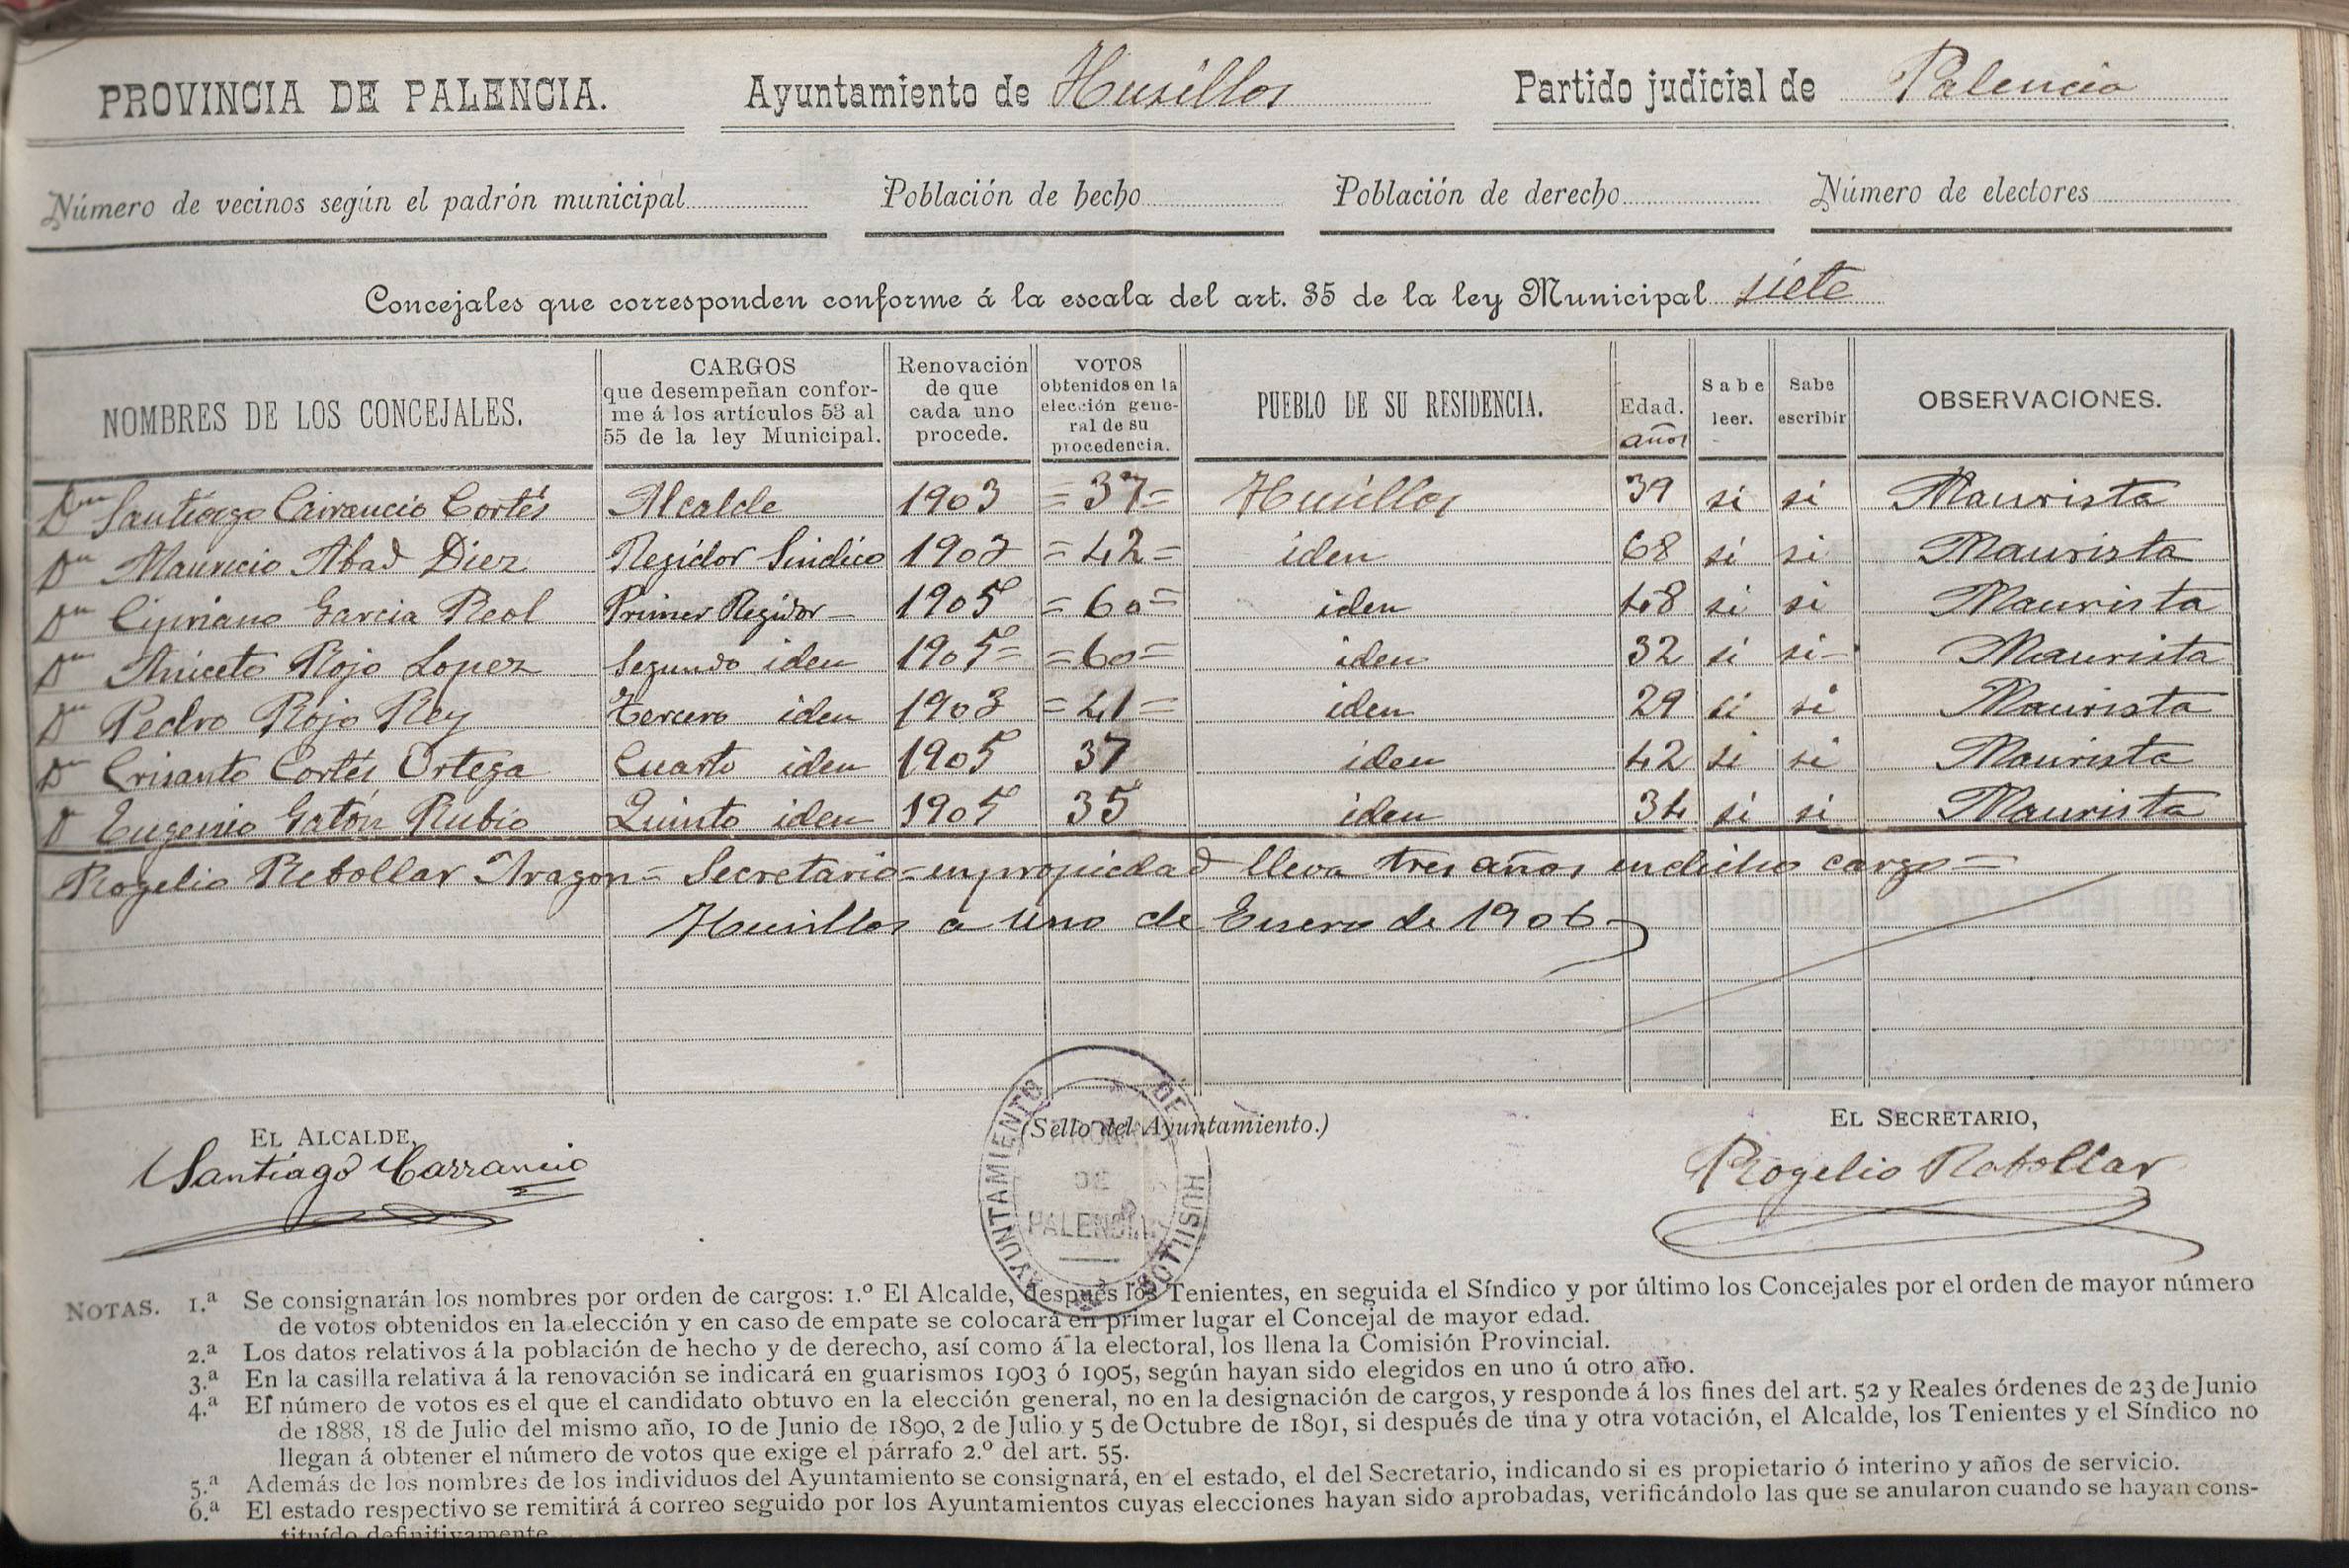 PROVINCIA DE PALENCIA. Ayuntamiento de Husillos Partido judicial de Palencia
Número de vecinos según el padrón municipal Población de hecho Población de derecho Número de electores
Concejales que corresponden conforme á la escala del art. 35 de la ley Municipal siete
NOMBRES DE LOS CONCEJALES.
CARGOS
que desempeñan confor-
me á los artículos 53 al
55 de la ley Municipal.
Renovación
de que
cada uno
procede.
VOTOS
obtenidos en la
elección gene-
ral de su
procedencia.
PUEBLO DE SU RESIDENCIA.
Edad.
años
Sabe
leer.
Sabe
escribir
OBSERVACIONES.
Dn Santiago Carrancio Cortés Alcalde 1903 =37= Husillos 39 si si Maurista
Dn Mauricio Abad Diez Regidor Sindico 1903 =42= iden 68 si si Maurista
Dn Cipriano Garcia Reol Primer Regidor- 1905 =60= iden 48 si si Maurista
Dn Aniceto Rojo Lopez Segundo iden 1905= =60= iden 32 si si- Maurista
Dn Pedro Rojo Rey tercero iden 1903 =41= iden 29 si si Maurista
Dn Crisanto Cortés Ortega Cuarto iden 1905 37 iden 42 si si Maurista
D Eugenio Gatón Rubio Quinto iden 1905 35 iden 34 si si Maurista
Rogelio Rebollar Aragon= Secretario= en propiedad lleva tres años en dicho cargo=
Husillos a uno de Enero de 1906
EL ALCALDE,
Santiago Carrancio
(Sello del Ayuntamiento.)
AYUNTAMIENTO DE HUSILLOS
DE
PALENCIA
EL SECRETARIO,
Rogelio Rebollar
NOTAS. 1.ª Se consignarán los nombres por orden de cargos: 1.º El Alcalde, después los Tenientes, en seguida el Síndico y por último los Concejales por el orden de mayor número
de votos obtenidos en la elección y en caso de empate se colocará en primer lugar el Concejal de mayor edad.
2.ª Los datos relativos á la población de hecho y de derecho, así como á la electoral, los llena la Comisión Provincial.
3.ª En la casilla relativa á la renovación se indicará en guarismos 1903 ó 1905, según hayan sido elegidos en uno ú otro año.
4.ª El número de votos es el que el candidato obtuvo en la elección general, no en la designación de cargos, y responde á los fines del art. 52 y Reales órdenes de 23 de Junio
de 1888, 18 de Julio del mismo año, 10 de Junio de 1890, 2 de Julio y 5 de Octubre de 1891, si después de una y otra votación, el Alcalde, los Tenientes y el Síndico no
llegan á obtener el número de votos que exige el párrafo 2.º del art. 55.
5.ª Además de los nombres de los individuos del Ayuntamiento se consignará, en el estado, el del Secretario, indicando si es propietario ó interino y años de servicio.
6.ª El estado respectivo se remitirá á correo seguido por los Ayuntamientos cuyas elecciones hayan sido aprobadas, verificándolo las que se anularon cuando se hayan cons-
tituído definitivamente.